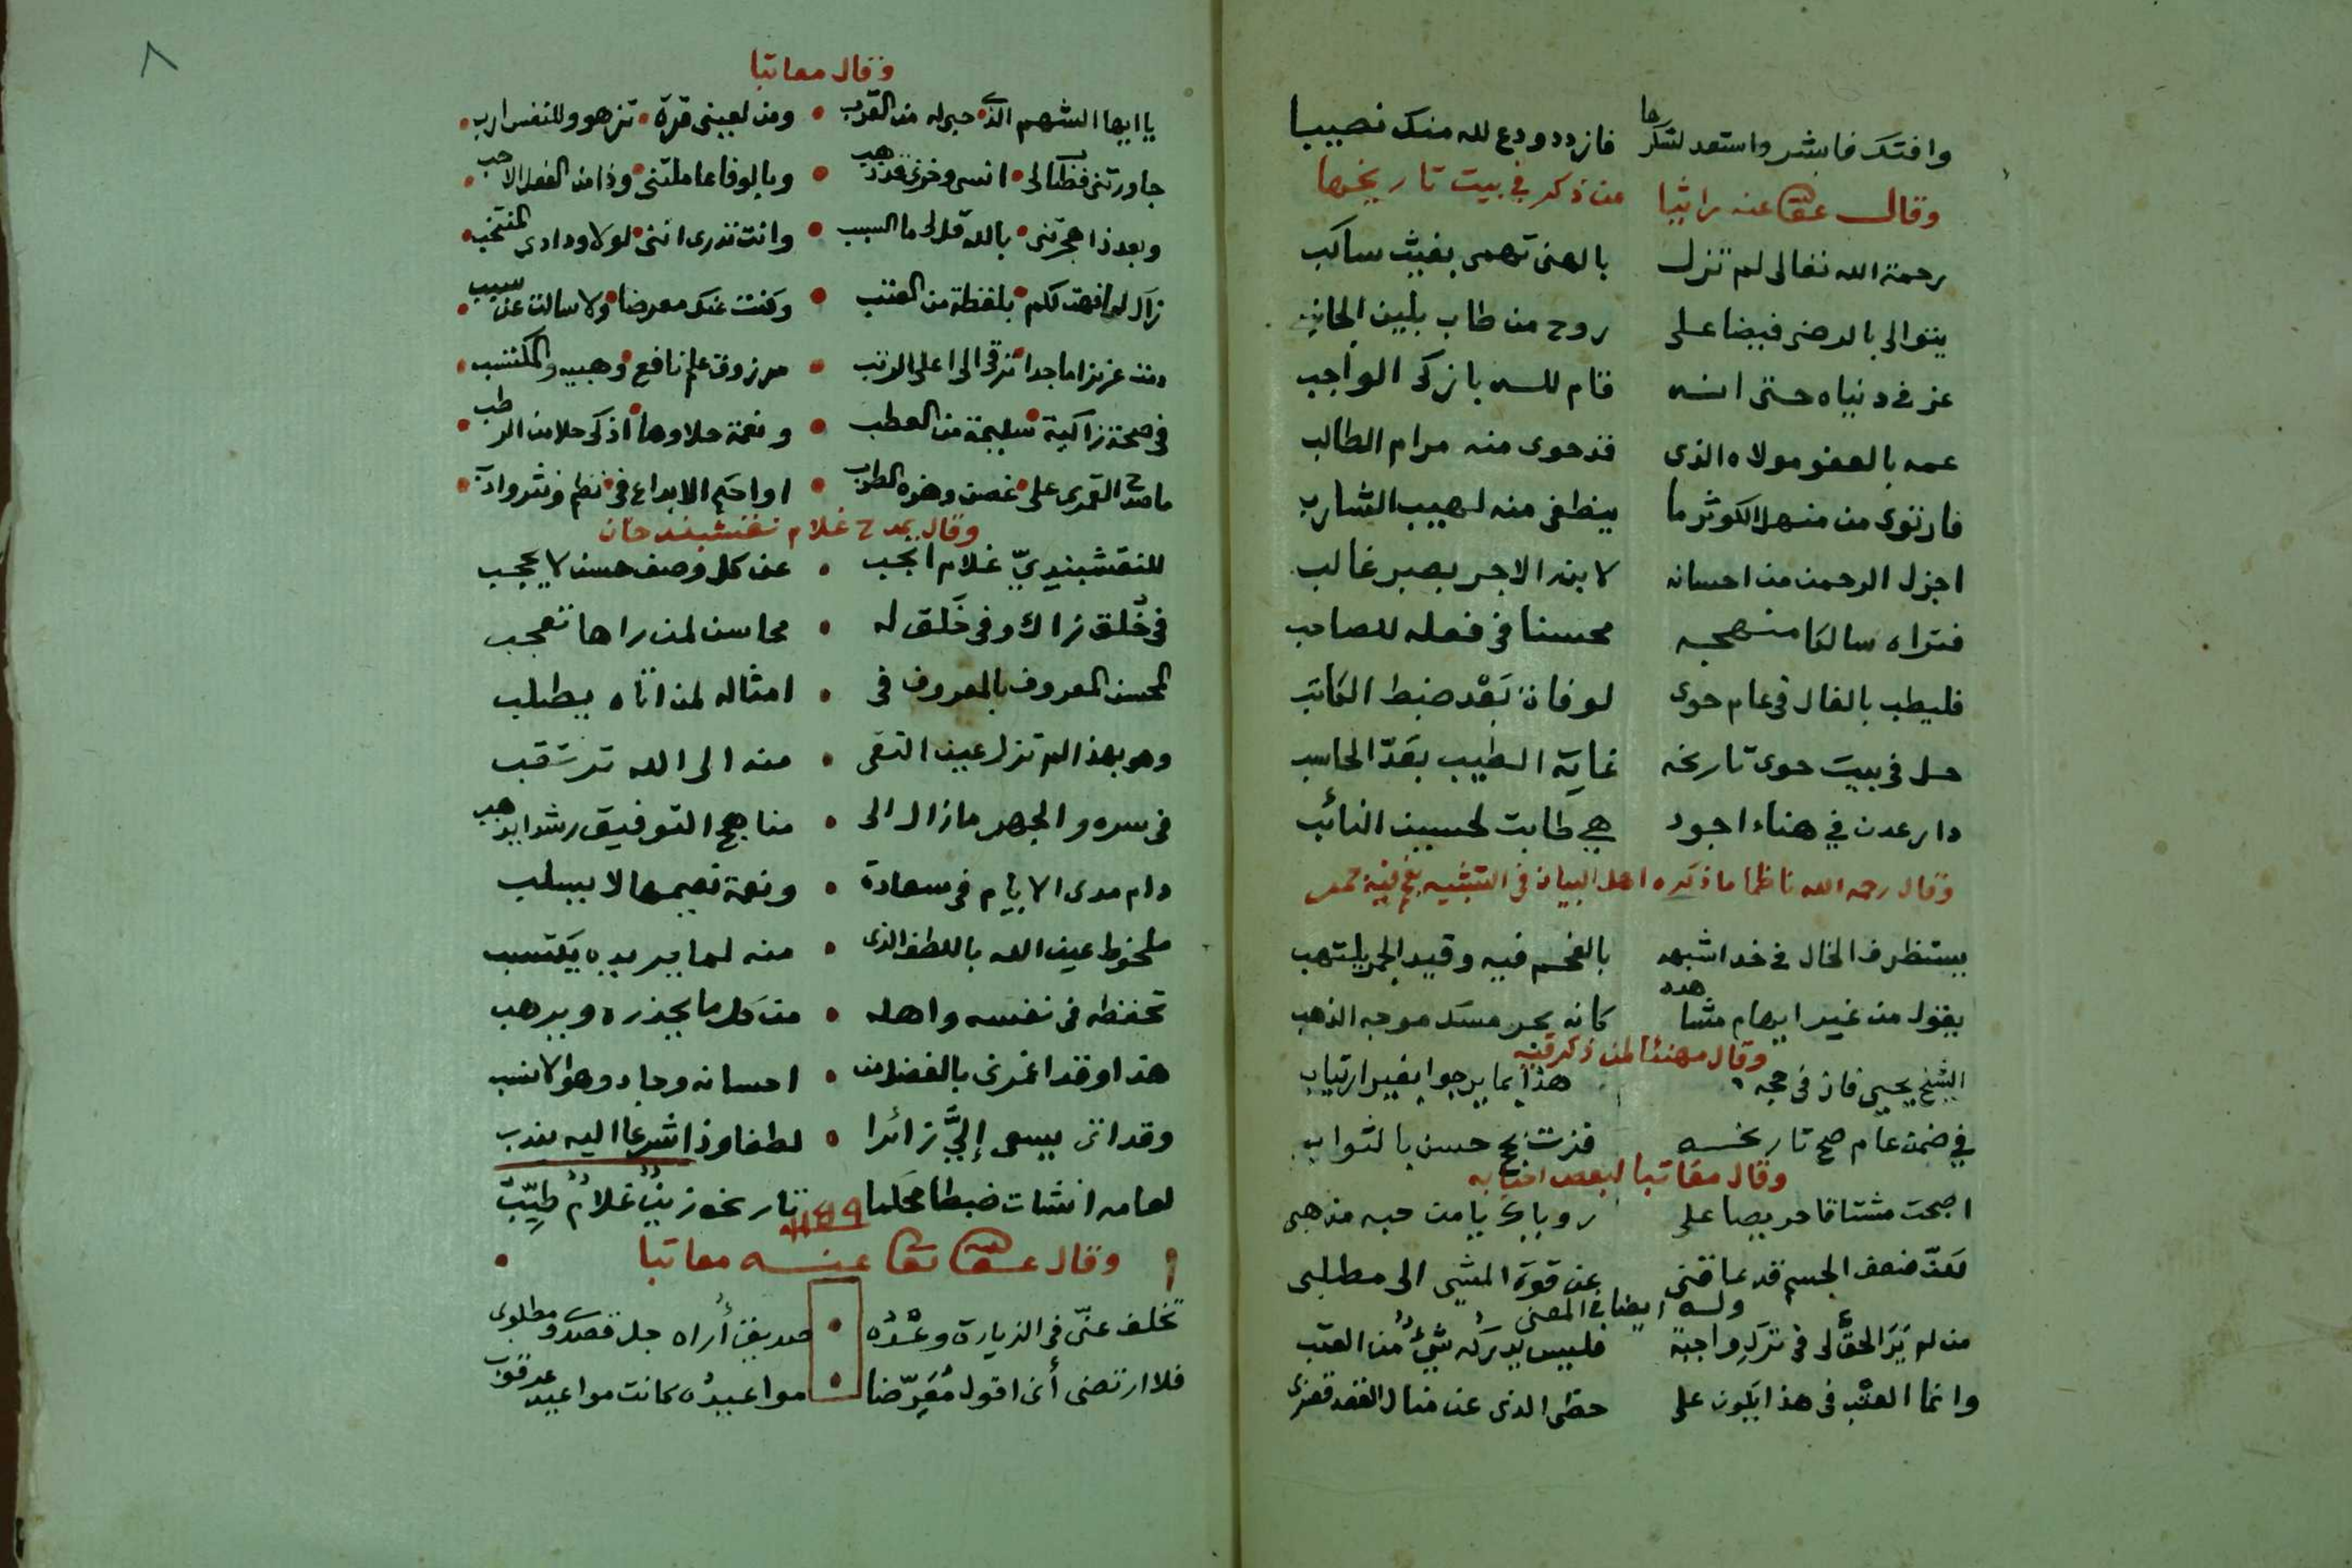 وافتك فابشر واستعد لشكرها فازدد ودع لله منك نصيبا
وقال عفا الله عنه راثيا من ذكر في بيت تاريخها
رحمة الله تعالى لم تزل بالهنى تهمى بغيث ساكب
يتوالى بالرضى فيضا على روح من طاب بلين الجانب
عز في دنياه حتى انه قام لله بازكى الواجب
عمه بالعفو مولاه الذى قد حوى منه مرام الطالب
فارتوى من منهل الكوثر ما ينطفى منه لهيب الشارب
اجزل الرحمن من احسانه لابنه الاجر بصبر غالب
فتراه سالكا منهجه محسنا في فعله للصاحب
فليطب بالفال في عام حوى لوفاة بعد ضبط الكاتب
حل في بيت حوى تاريخه غاية الطيب بعد الحاسب
دار عدن في هناء اجود هي طابت لحسين النائب
وقال رحمه الله ناظما ما ذكره اهل البيان في التشبيه
يستظرف الخال في خد اشبهه بالفحم فيه وقيد الجمر يلتهب
يقول من غير ايهام مشاهده كانه بحر مسك موجه الذهب
وقال مهنئا لمن ذكر فيه
الشيخ يحيى فاز في حجه هذا بما يرجو بغير ارتياب
في ضمن عام صح تاريخه فزت بحج حسن بالثواب
وقال معاتبا لبعض احبابه
اصبحت مشتاقا حريصا على روياك يا من حبه مذهبى
لكن ضعف الجسم قد عاقنى عن قوة المشى الى مطلبى
وله ايضا في المعنى
من لم يَرَ الحق لى في ترك واجبة فليس يدركه شيء من العتب
وانما العتب في هذا يكون على حظى الذى عن منال القصد قصر بى
٨
وقال معاتبا
يا ايها الشهم الذى حبى له من القرب ومن لعينى قرة تزهو وللنفس ارب
جاورتنى فطاب لى انسى وحزنى قد ذهب وبالوفا عاملتنى وذا من الفعل الاحب
وبعد ذا هجرتنى بالله قل لى ما السبب وانت تدرى اننى لولا ودادى المنتخب
زال لما فهت لكم بلفظة من العتب وكنت عنك معرضا ولا سالت عن سبب
دمت عزيزا ماجدا ترقى الى اعلى الرتب مرزوق علم نافع وهبيه والمكتسب
في صحة زاكية سليمة من العطب ونعمة حلاوها اذكى حلا من الرطب
ما صدح القمرى على غصن وهزه الطرب او احكم الابداع في نظم ونثر وادب
وقال يمدح غلام نقشبند خان
للنقشبنديّ غلام انجب عن كل وصف حسن لا يحجب
في خُلق زاك وفي خَلق له محاسن لمن راها تعجب
المحسن المعروف بالمعروف في امثاله لمن اتاه يطلب
وهو بهذا لم تزل عين التقى منه الى الله ترتقب
في سره والجهر ما زال الى مناهج التوفيق رشدا يذهب
دام مدى الايام في سعادة ونعمة نعيمها لا يسلب
ملحوظ عين الله باللطف الذى منه لما يريده يكتسب
تحفظه في نفسه واهله من كل ما يحذره ويرهب
هذا وقد اغمرنى بالفضل من احسانه وجاد وهو الانسب
وقد اتى يسعى إليَّ زائرا لطفا وذا شرعا اليه يندب
لعامه انشات ضبطا محكما تاريخه زينٌ غلامٌ طيّبٌ
١١٤٩
وقال عفا الله تعالى عنه معاتبا
تخلف عنّى في الزيارة وعْدُه صديق أراه جل قصدى ومطلوبى
فلا ارتضى أن اقول مُعَرّضا مواعيدُه كانت مواعيد عرقوب